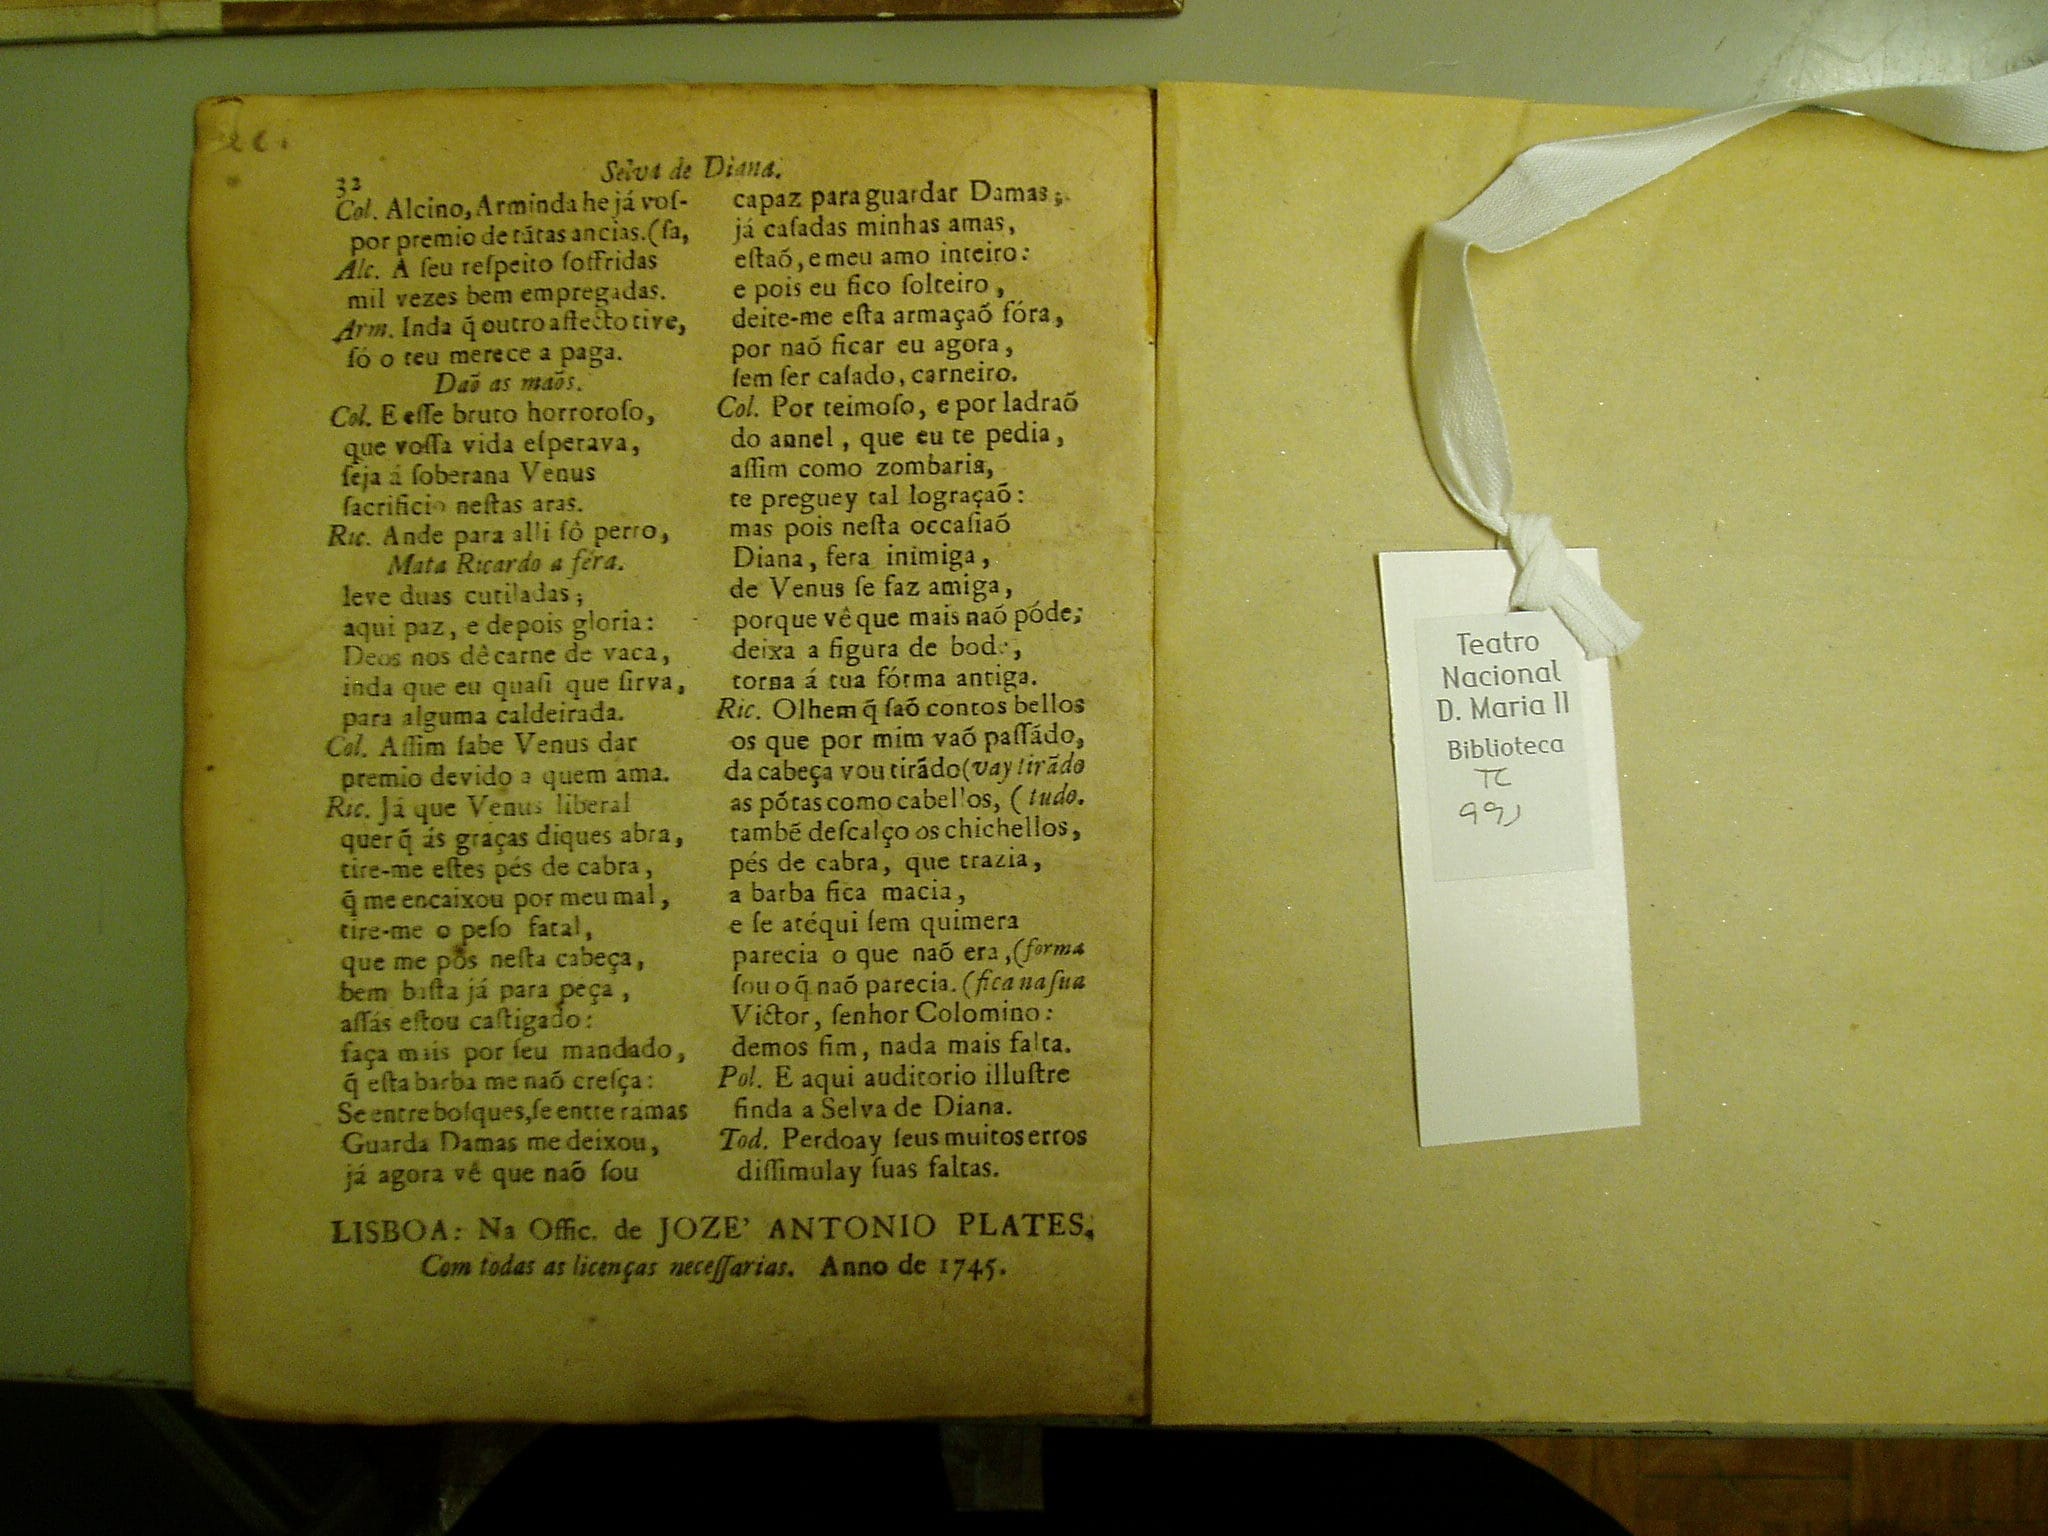 32
Selva de Diana.
Col. Alcino, Arminda he já voſ-
por premio de tãtas ancias. (ſa,
Alc. A ſeu reſpeito ſoffridas
mil vezes bem empregadas.
Arm. Inda q̃ outro affecto tive,
ſó o teu merece a paga.
Daõ as maõs.
Col. E eſſe bruto horroroſo,
que voſſa vida eſperava,
ſeja á ſoberana Venus
ſacrificio neſtas aras.
Ric. Ande para alli ſô perro,
Mata Ricardo a féra.
leve duas cutiladas;
aqui paz, e depois gloria:
Deos nos dê carne de vaca,
inda que eu quaſi que ſirva,
para alguma caldeirada.
Col. Aſſim ſabe Venus dar
premio devido a quem ama.
Ric. Já que Venus liberal
quer q̃ ás graças diques abra,
tire-me eſtes pés de cabra,
q̃ me encaixou por meu mal,
tire-me o peſo fatal,
que me pôs neſta cabeça,
bem baſta já para peça,
aſſás eſtou caſtigado:
faça mais por ſeu mandado,
q̃ eſta barba me naõ creſça:
Se entre boſques, ſe entre ramas
Guarda Damas me deixou,
já agora vê que naõ ſou
capaz para guardar Damas;
já caſadas minhas amas,
eſtaõ, e meu amo inteiro:
e pois eu fico ſolteiro,
deite-me eſta armaçaõ fóra,
por naõ ficar eu agora,
ſem ſer caſado, carneiro.
Col. Por teimoſo, e por ladraõ
do annel, que eu te pedia,
aſſim como zombaria,
te preguey tal lograçaõ:
mas pois neſta occaſiaõ
Diana, fera inimiga,
de Venus ſe faz amiga,
porque vê que mais naõ póde;
deixa a figura de bode,
torna á tua fórma antiga.
Ric. Olhem q̃ ſaõ contos bellos
os que por mim vaõ paſſãdo,
da cabeça vou tirãdo (vay tirãdo
as pótas como cabellos, (tudo.
tambẽ deſcalço os chichellos,
pés de cabra, que trazia,
a barba fica macia,
e ſe atéqui ſem quimera
parecia o que naõ era, (forma
ſou o q̃ naõ parecia. (fica na ſua
Victor, ſenhor Colomino:
demos fim, nada mais falta.
Pol. E aqui auditorio illuſtre
finda a Selva de Diana.
Tod. Perdoay ſeus muitos erros
diſſimulay ſuas faltas.
LISBOA: Na Offic. de JOZE' ANTONIO PLATES,
Com todas as licenças neceſſarias. Anno de 1745.
Teatro
Nacional
D. Maria II
Biblioteca
TC
991